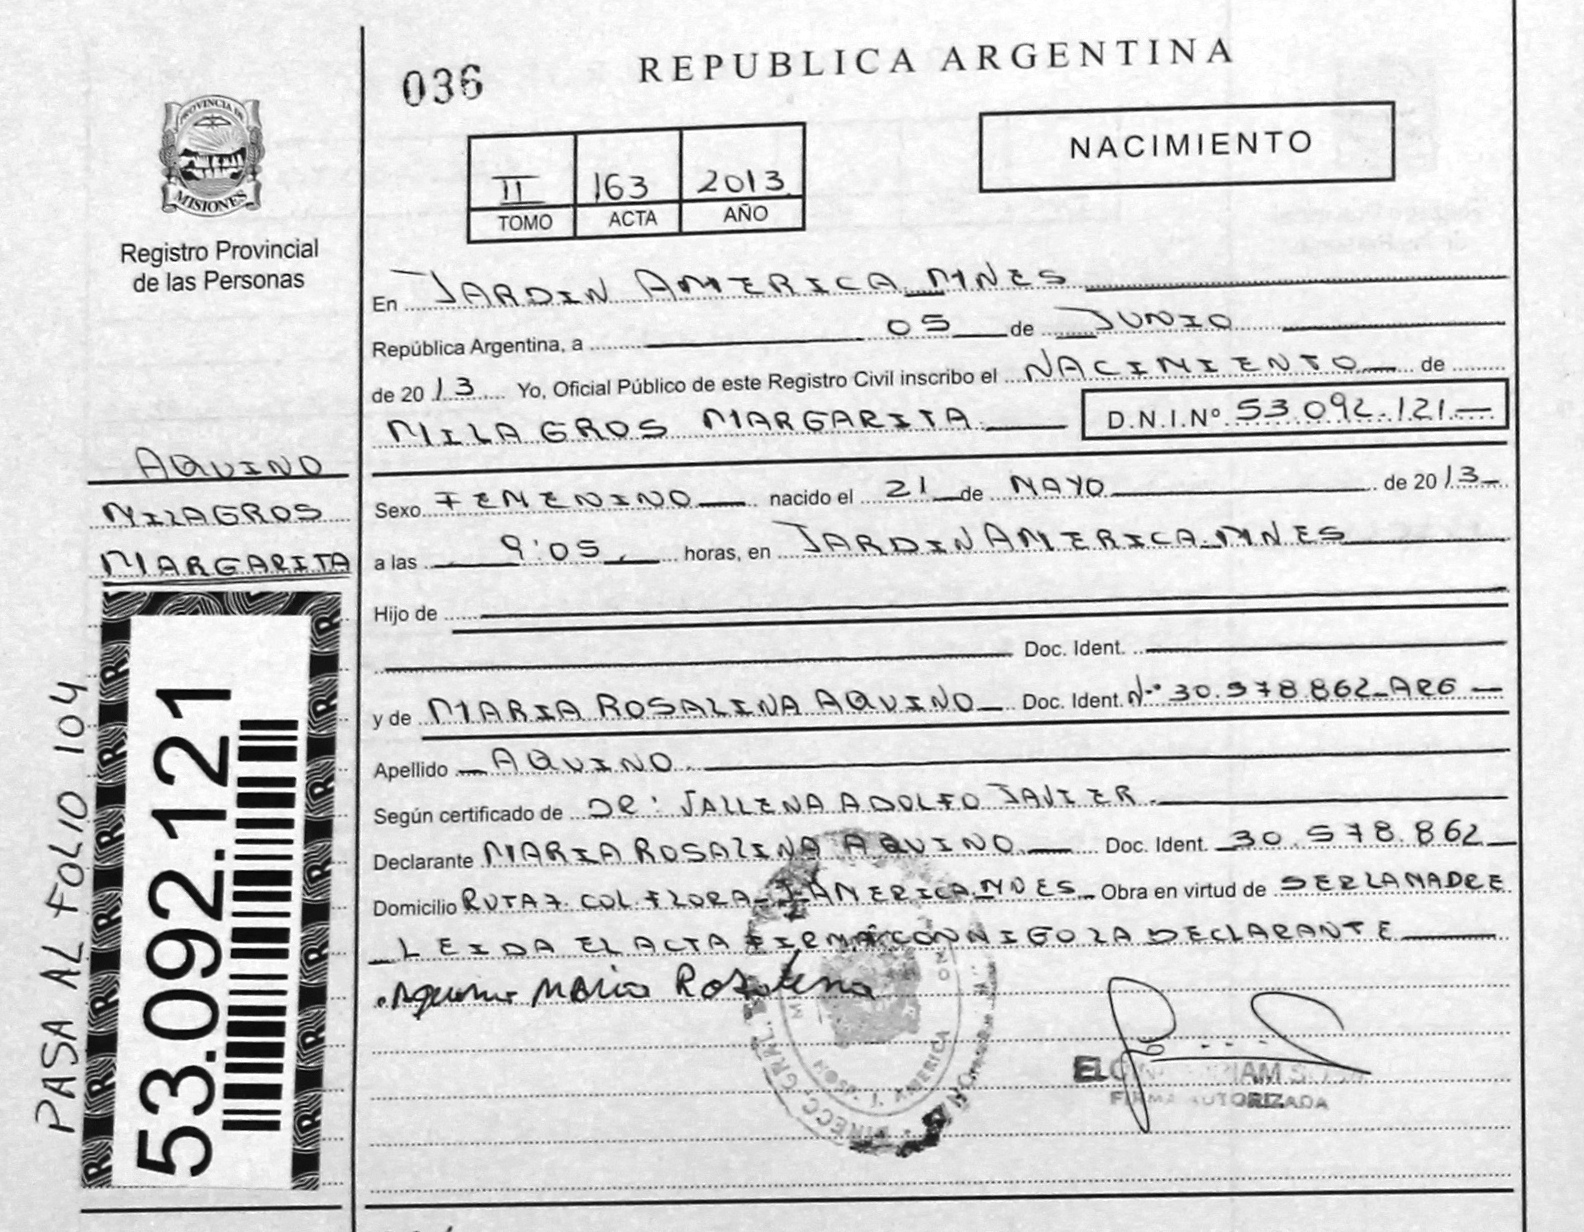 036
REPUBLICA ARGENTINA
NACIMIENTO
II 163 2013
TOMO ACTA AÑO
PROVINCIA DE
MISIONES
Registro Provincial
de las Personas
En JARDIN AMERICA MNES
República Argentina, a 05 de JUNIO
de 2013 Yo, Oficial Público de este Registro Civil inscribo el NACIMIENTO de
MILAGROS MARGARITA D.N.I.Nº 53.092.121
AQUINO
MILAGROS
MARGARITA
Sexo FEMENINO nacido el 21 de MAYO de 2013
a las 9:05 horas, en JARDIN AMERICA MNES
Hijo de
Doc. Ident.
y de MARIA ROSALINA AQUINO Doc. Ident. Nº 30.578.862 ARG
Apellido AQUINO
Según certificado de DR: VALLENA ADOLFO JAVIER
Declarante MARIA ROSALINA AQUINO Doc. Ident. 30.578.862
Domicilio RUTA 7. COL. FLORA J. AMERICA. MNES Obra en virtud de SER LA MADRE
LEIDA EL ACTA FIRMA CONMIGO LA DECLARANTE
Aquino Maria Rosalina
FIRMA AUTORIZADA
J. AMERICA
53.092.121
PASA AL FOLIO 104